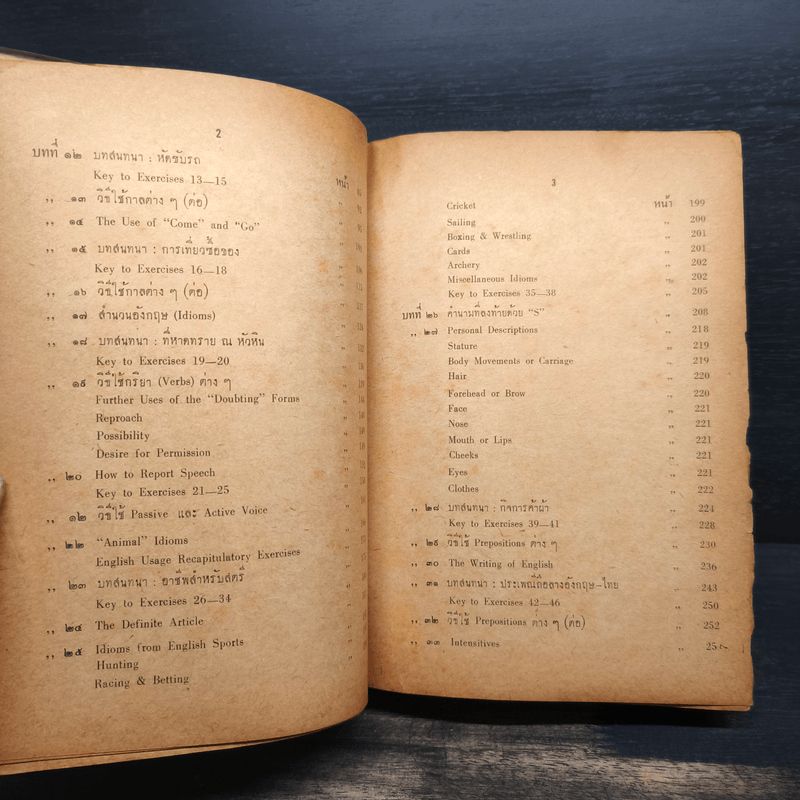 2
บทที่ ๑๒ บทสนทนา : หัดขับรถ
Key to Exercises 13—15
หน้า
,, ๑๓ วิธีใช้กาลต่าง ๆ (ต่อ)
,, ๑๔ The Use of “Come” and “Go”
,, ๑๕ บทสนทนา : การเที่ยวซื้อของ
Key to Exercises 16—18
,, ๑๖ วิธีใช้กาลต่าง ๆ (ต่อ)
,, ๑๗ สำนวนอังกฤษ (Idioms)
,, ๑๘ บทสนทนา : ที่หาดทราย ณ หัวหิน
Key to Exercises 19—20
,, ๑๙ วิธีใช้กริยา (Verbs) ต่าง ๆ
Further Uses of the “Doubting” Forms
Reproach
Possibility
Desire for Permission
,, ๒๐ How to Report Speech
Key to Exercises 21—25
,, ๑๒ วิธีใช้ Passive และ Active Voice
,, ๒๒ “Animal” Idioms
English Usage Recapitulatory Exercises
,, ๒๓ บทสนทนา : อาชีพสำหรับสตรี
Key to Exercises 26—34
,, ๒๔ The Definite Article
,, ๒๕ Idioms from English Sports
Hunting
Racing & Betting
3
Cricket หน้า 199
Sailing ,, 200
Boxing & Wrestling ,, 201
Cards ,, 201
Archery ,, 202
Miscellaneous Idioms ,, 202
Key to Exercises 35—38 ,, 205
บทที่ ๒๖ คำนามที่ลงท้ายด้วย “S” ,, 208
,, ๒๗ Personal Descriptions ,, 218
Stature ,, 219
Body Movements or Carriage ,, 219
Hair ,, 220
Forehead or Brow ,, 220
Face ,, 221
Nose ,, 221
Mouth or Lips ,, 221
Cheeks ,, 221
Eyes ,, 221
Clothes ,, 222
,, ๒๘ บทสนทนา : กิจการค้าผ้า ,, 224
Key to Exercises 39—41 ,, 228
,, ๒๙ วิธีใช้ Prepositions ต่าง ๆ ,, 230
,, ๓๐ The Writing of English ,, 236
,, ๓๑ บทสนทนา : ประเพณีถือลางอังกฤษ-ไทย ,, 243
Key to Exercises 42—46 ,, 250
,, ๓๒ วิธีใช้ Prepositions ต่าง ๆ (ต่อ) ,, 252
,, ๓๓ Intensitives ,, 257